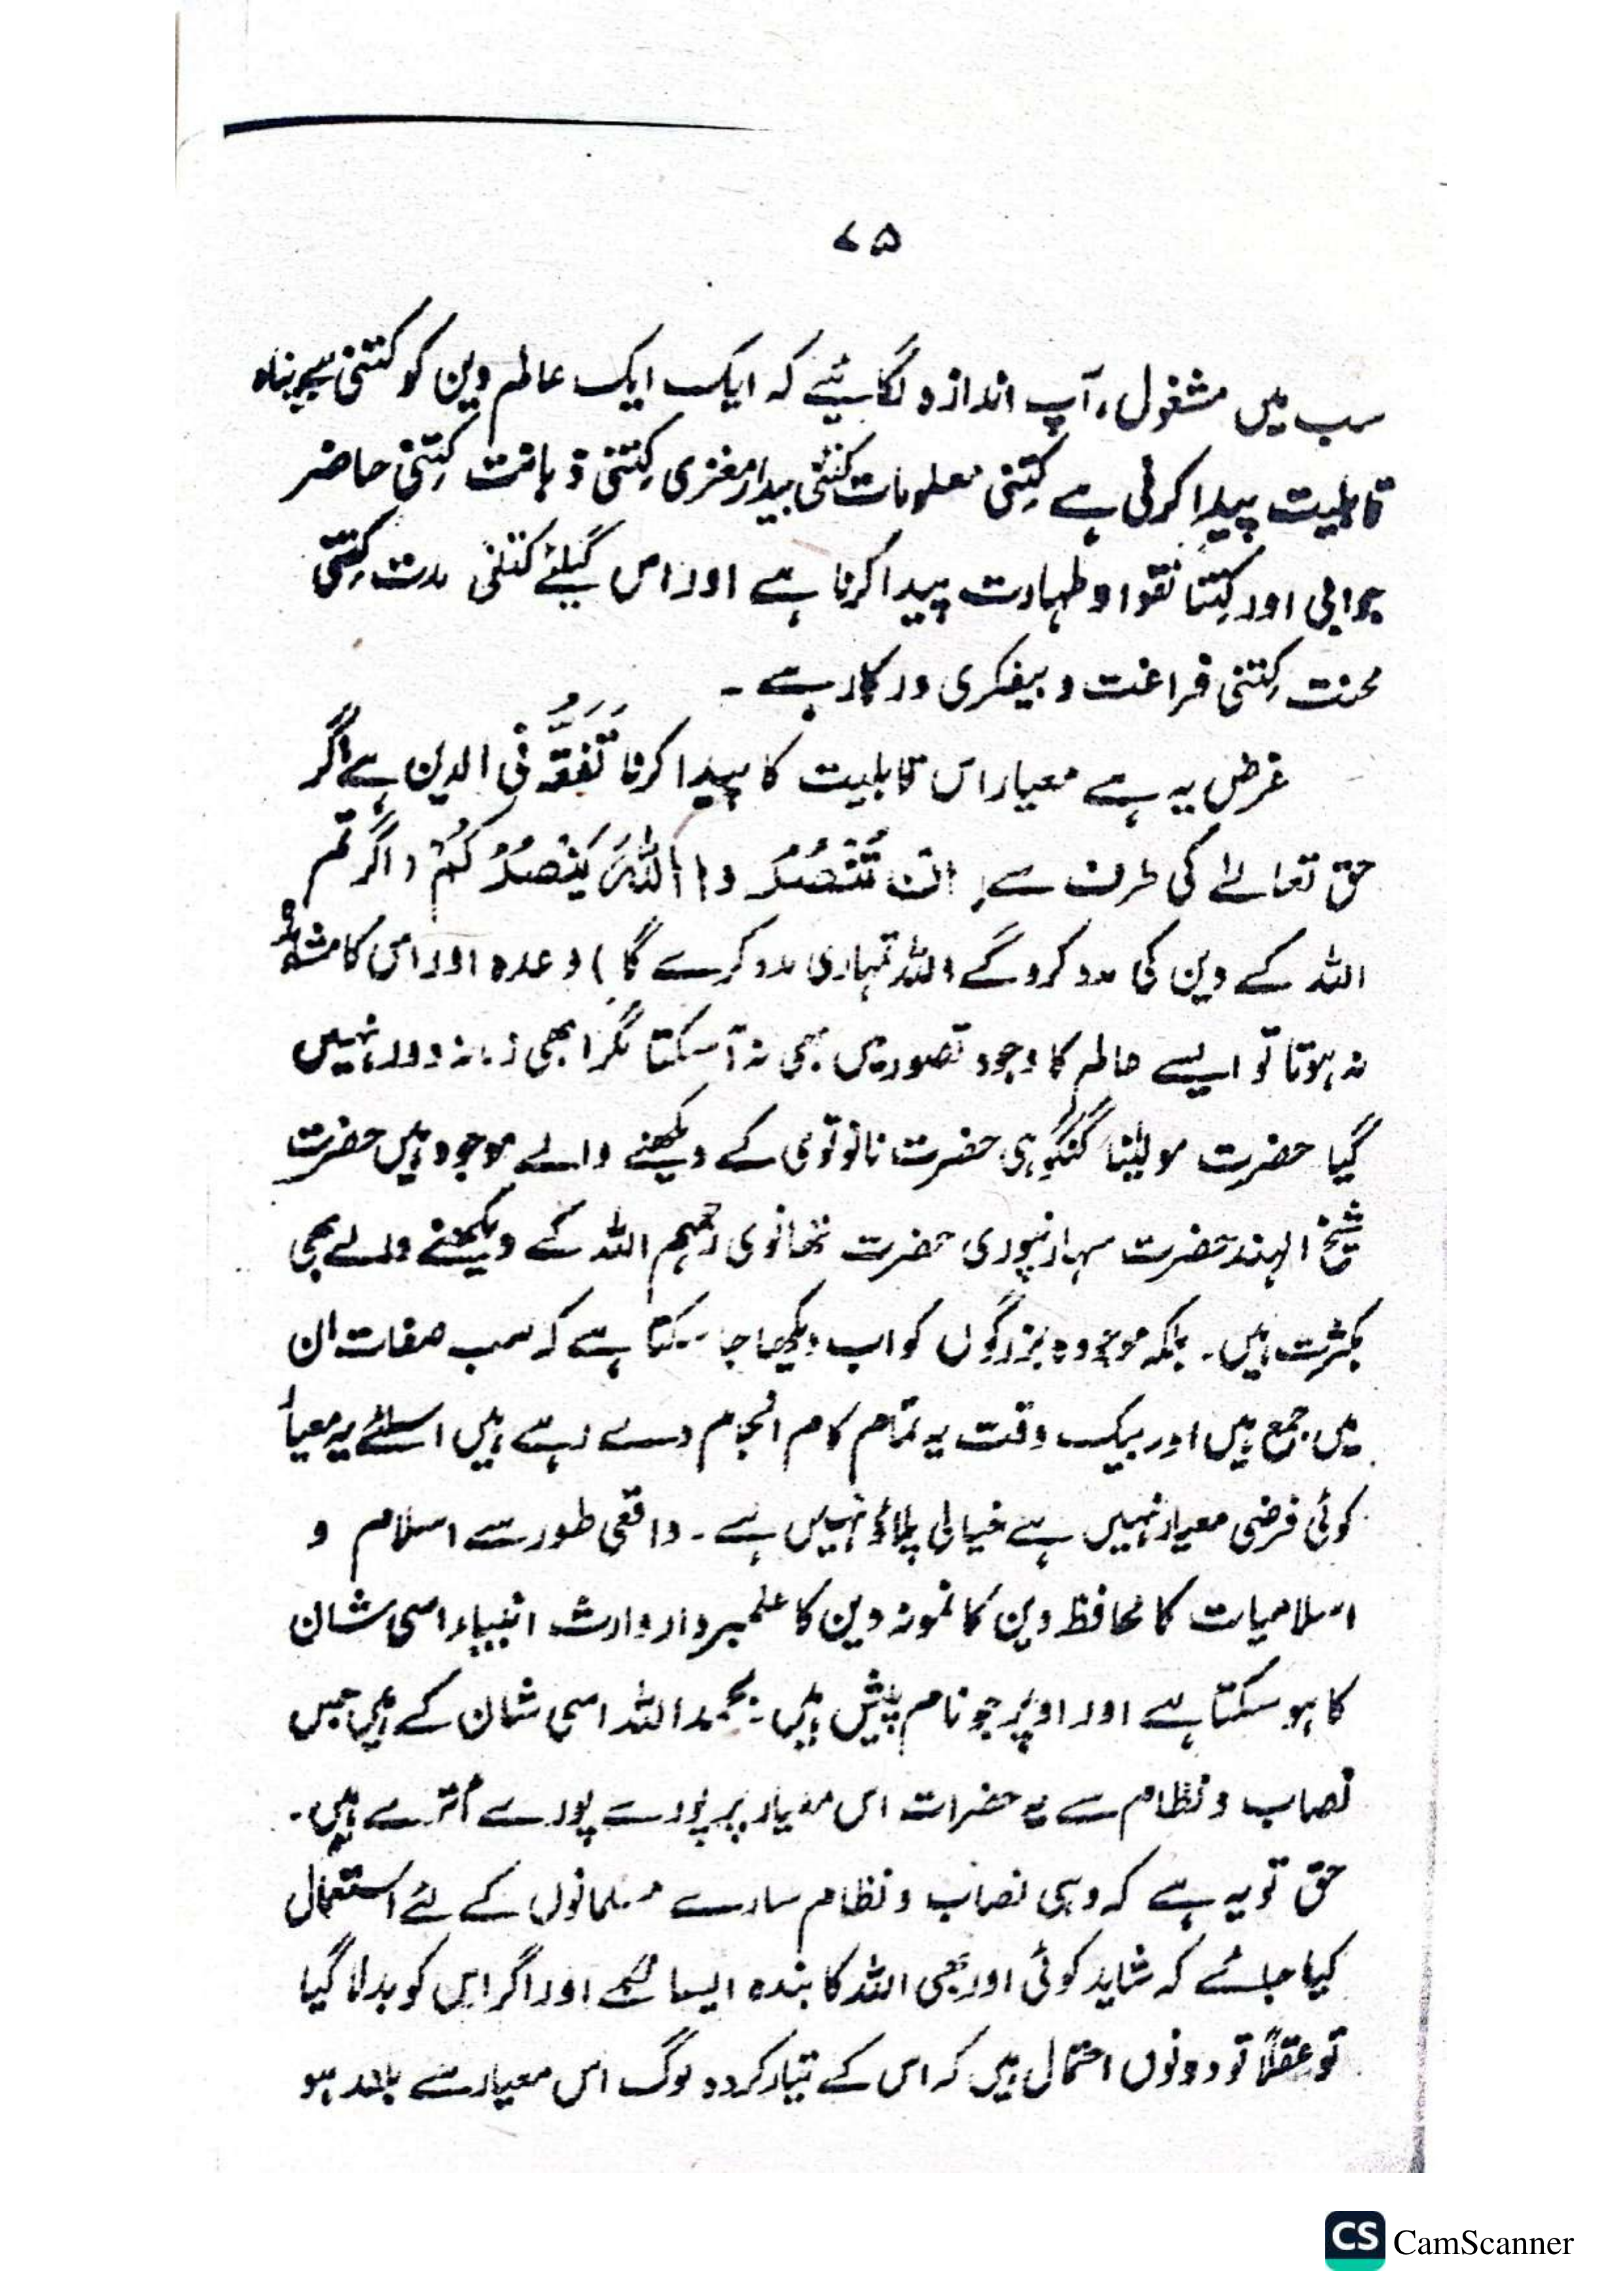 ۷۵
سب میں مشغول، آپ اندازہ لگائیے کہ ایک ایک عالم دین کو کتنی بے پناہ
قابلیت پیدا کرنی ہے کتنی معلومات کتنی بیدار مغزی کتنی ذہانت کتنی حاضر
جوابی اور کتنا تقوا و طہارت پیدا کرنا ہے اور اس کیلئے کتنی مدت کتنی
محنت کتنی فراغت و بیفکری درکار ہے ۔
غرض یہ ہے معیار اس قابلیت کا پیدا کرنا تَفَقُّہ فی الدین ہے اگر
حق تعالےٰ کی طرف سے اِنْ تَنْصُرُوا اللّٰہَ یَنْصُرْکُمْ (اگر تم
اللہ کے دین کی مدد کروگے اللہ تمہاری مدد کرے گا) وعدہ اور اس کا مشاہدہ
نہ ہوتا تو ایسے عالم کا وجود تصور میں بھی نہ آسکتا مگر ابھی زمانہ دور نہیں
گیا حضرت مولیٰنا گنگوہی حضرت نانوتوی کے دیکھنے والے موجود ہیں حضرت
شیخ الہند حضرت سہارنپوری حضرت تھانوی رحمہم اللہ کے دیکھنے والے بھی
بکثرت ہیں ۔ بلکہ موجودہ بزرگوں کو اب دیکھا جا سکتا ہے کہ سب صفات ان
میں جمع ہیں اور بیک وقت یہ تمام کام انجام دے رہے ہیں اسلئے یہ معیار
کوئی فرضی معیار نہیں ہے خیالی پلاؤ نہیں ہے ۔ واقعی طور سے اسلام و
اسلامیات کا محافظ دین کا نمونہ دین کا علمبردار وارث انبیاء اسی شان
کا ہو سکتا ہے اور اوپر جو نام پیش ہیں بحمد اللہ اسی شان کے ہیں جس
نصاب و نظام سے یہ حضرات اس معیار پر پورے پورے اُترے ہیں ۔
حق تو یہ ہے کہ وہی نصاب و نظام سارے مسلمانوں کے لئے استعمال
کیا جائے کہ شاید کوئی اور بھی اللہ کا بندہ ایسا نکلے اور اگر اس کو بدلا گیا
تو عقلاً تو دونوں احتمال ہیں کہ اس کے تیار کردہ لوگ اس معیار سے بلند ہو
CS CamScanner